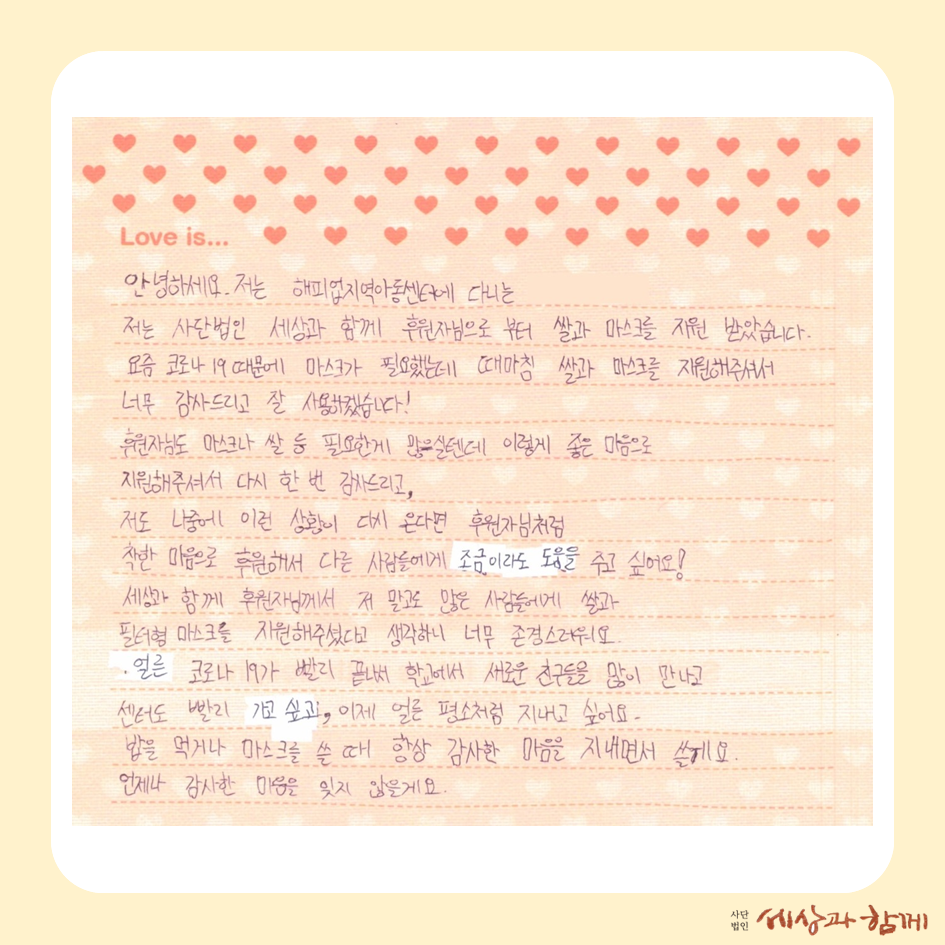 Love is...
안녕하세요. 저는 해피업지역아동센터에 다니는
저는 사단법인 세상과 함께 후원자님으로 부터 쌀과 마스크를 지원 받았습니다.
요즘 코로나19 때문에 마스크가 필요했는데 때마침 쌀과 마스크를 지원해주셔서
너무 감사드리고 잘 사용하겠습니다!
후원자님도 마스크나 쌀 등 필요한게 많으실텐데 이렇게 좋은 마음으로
지원해주셔서 다시 한 번 감사드리고,
저도 나중에 이런 상황이 다시 온다면 후원자님처럼
착한 마음으로 후원해서 다른 사람들에게 조금이라도 도움을 주고 싶어요!
세상과 함께 후원자님께서 저 말고도 많은 사람들에게 쌀과
필터형 마스크를 지원해주셨다고 생각하니 너무 존경스러워요.
. 얼른 코로나 19가 빨리 끝나서 학교에서 새로운 친구들을 많이 만나고
센터도 빨리 가고 싶고, 이제 얼른 평소처럼 지내고 싶어요.
밥을 먹거나 마스크를 쓸 때 항상 감사한 마음을 지내면서 쓸게요.
언제나 감사한 마음을 잊지 않을게요.
사단
법인 세상과 함께